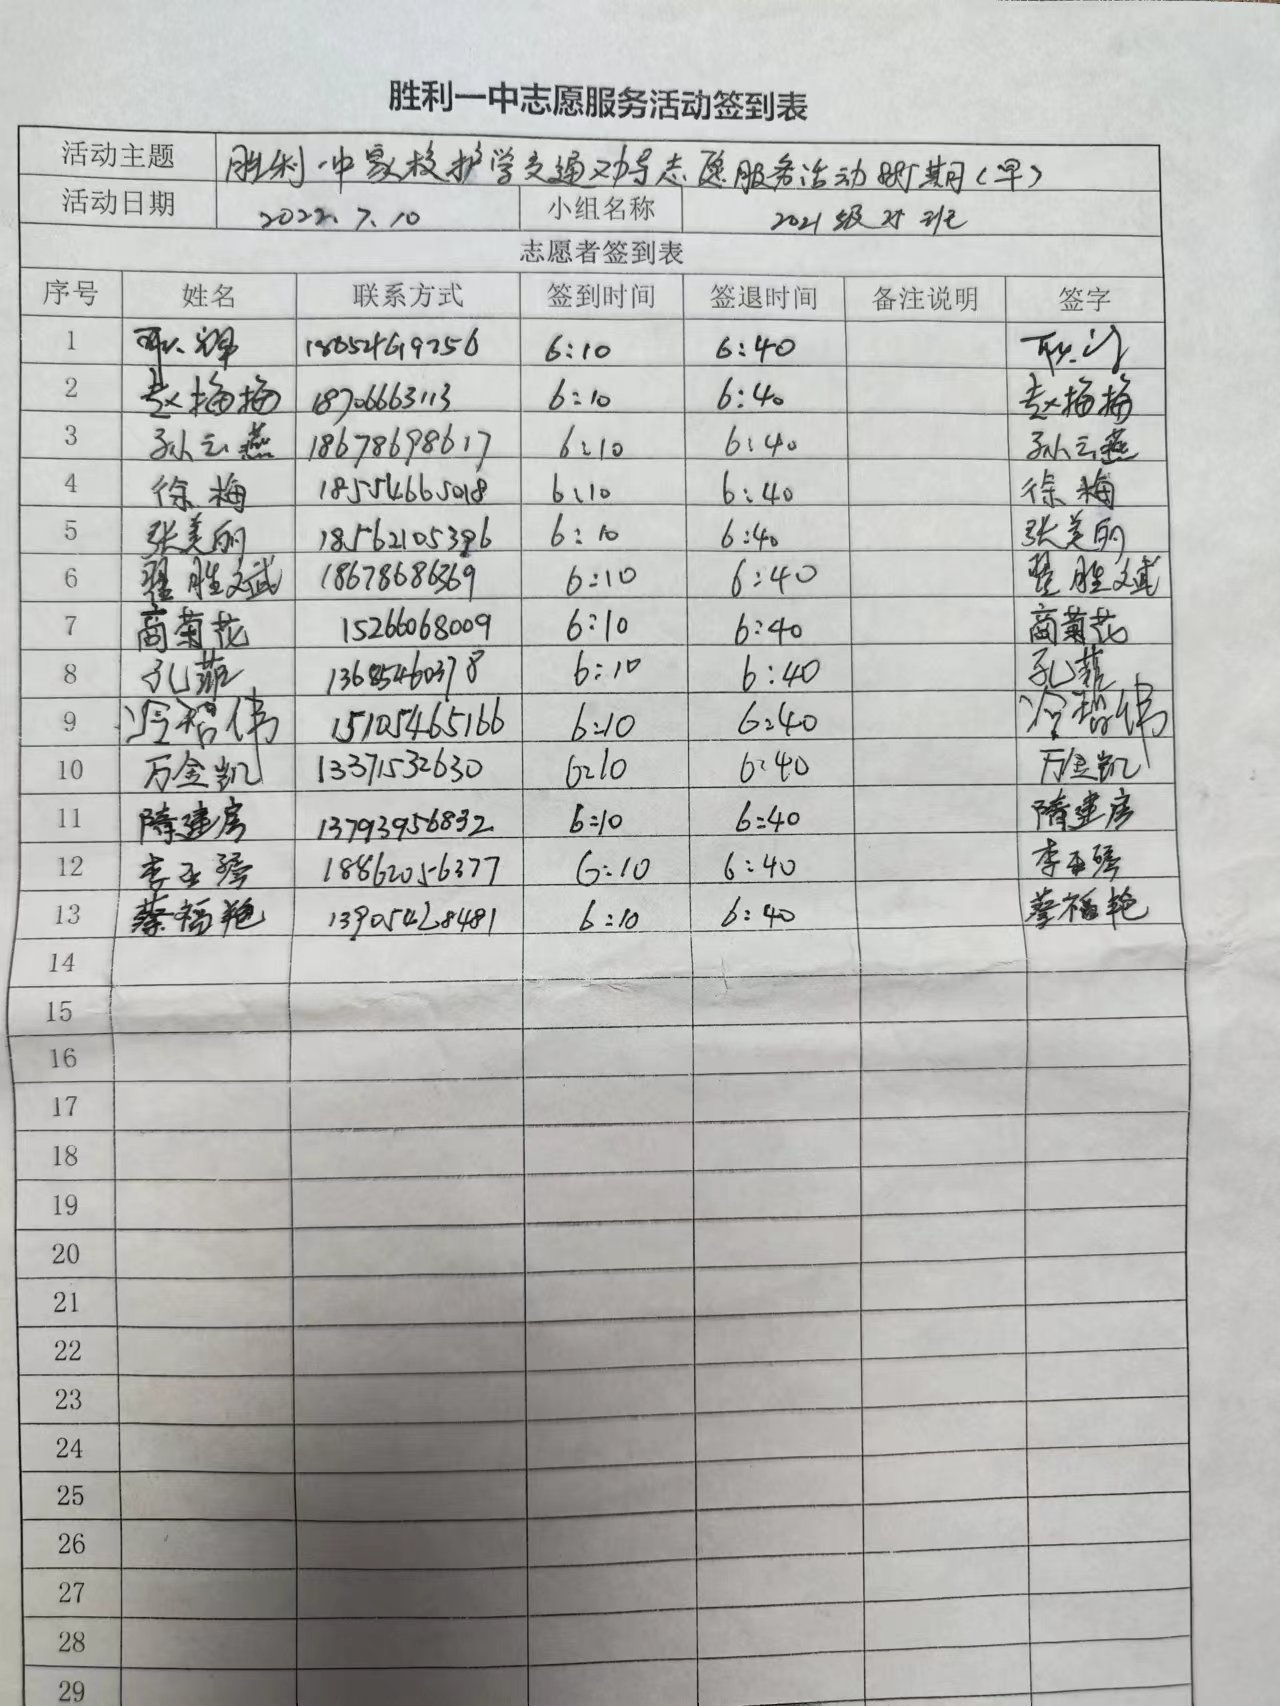 胜利一中志愿服务活动签到表
活动主题 胜利一中家校护学交通劝导志愿服务活动 期(早)
活动日期 2022.7.10 小组名称 2021级 班
志愿者签到表
序号 姓名 联系方式 签到时间 签退时间 备注说明 签字
1 18654619756 6:10 6:40
2 赵梅梅 18706663113 6:10 6:40 赵梅梅
3 孙云燕 18678698617 6:10 6:40 孙云燕
4 徐梅 18554665018 6:10 6:40 徐梅
5 张美丽 18562105396 6:10 6:40 张美丽
6 翟胜斌 18678686369 6:10 6:40 翟胜斌
7 商菊花 15266068009 6:10 6:40 商菊花
8 孔菲 13685460378 6:10 6:40 孔菲
9 冷哲伟 15105465166 6:10 6:40 冷哲伟
10 万金凯 13371532630 6:10 6:40 万金凯
11 隋建房 13793956832 6:10 6:40 隋建房
12 李玉琴 18862056377 6:10 6:40 李玉琴
13 蔡福艳 13905428481 6:10 6:40 蔡福艳
14
15
16
17
18
19
20
21
22
23
24
25
26
27
28
29